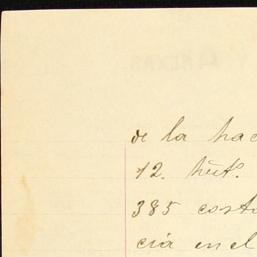 de la hac
12. hect.
385 costa
cia en el